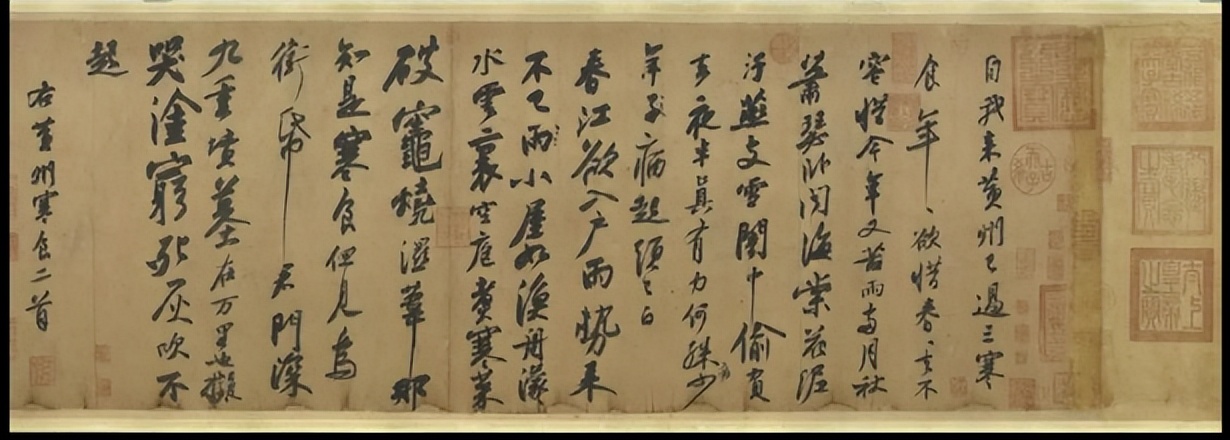 自我来黄州已過三寒
食年、欲惜春、去不
容惜今年又苦雨兩月秋
蕭瑟卧聞海棠花泥
汙燕支雪闇中偷負
去夜半真有力何殊病少
年子病起頭已白
春江欲入户雨勢来
不已雨小屋如漁舟濛
水雲裏空庖煑寒菜
破竈燒濕葦那
知是寒食但見烏
銜帋君門深
九重墳墓在万里也擬
哭塗窮死灰吹不
起
右黄州寒食二首